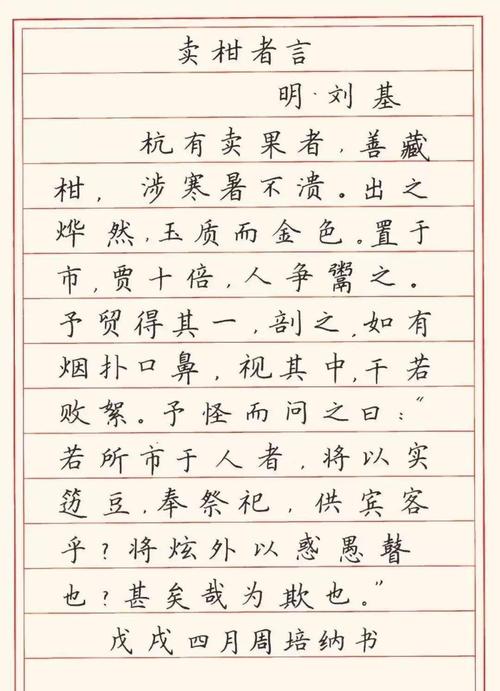 卖柑者言
明·刘基
杭有卖果者,善藏
柑,涉寒暑不溃。出之
烨然,玉质而金色。置于
市,贾十倍,人争鬻之。
予贸得其一,剖之,如有
烟扑口鼻,视其中,干若
败絮。予怪而问之曰:“
若所市于人者,将以实
笾豆,奉祭祀,供宾客
乎?将炫外以惑愚瞽
也?甚矣哉为欺也。”
戊戌四月周培纳书